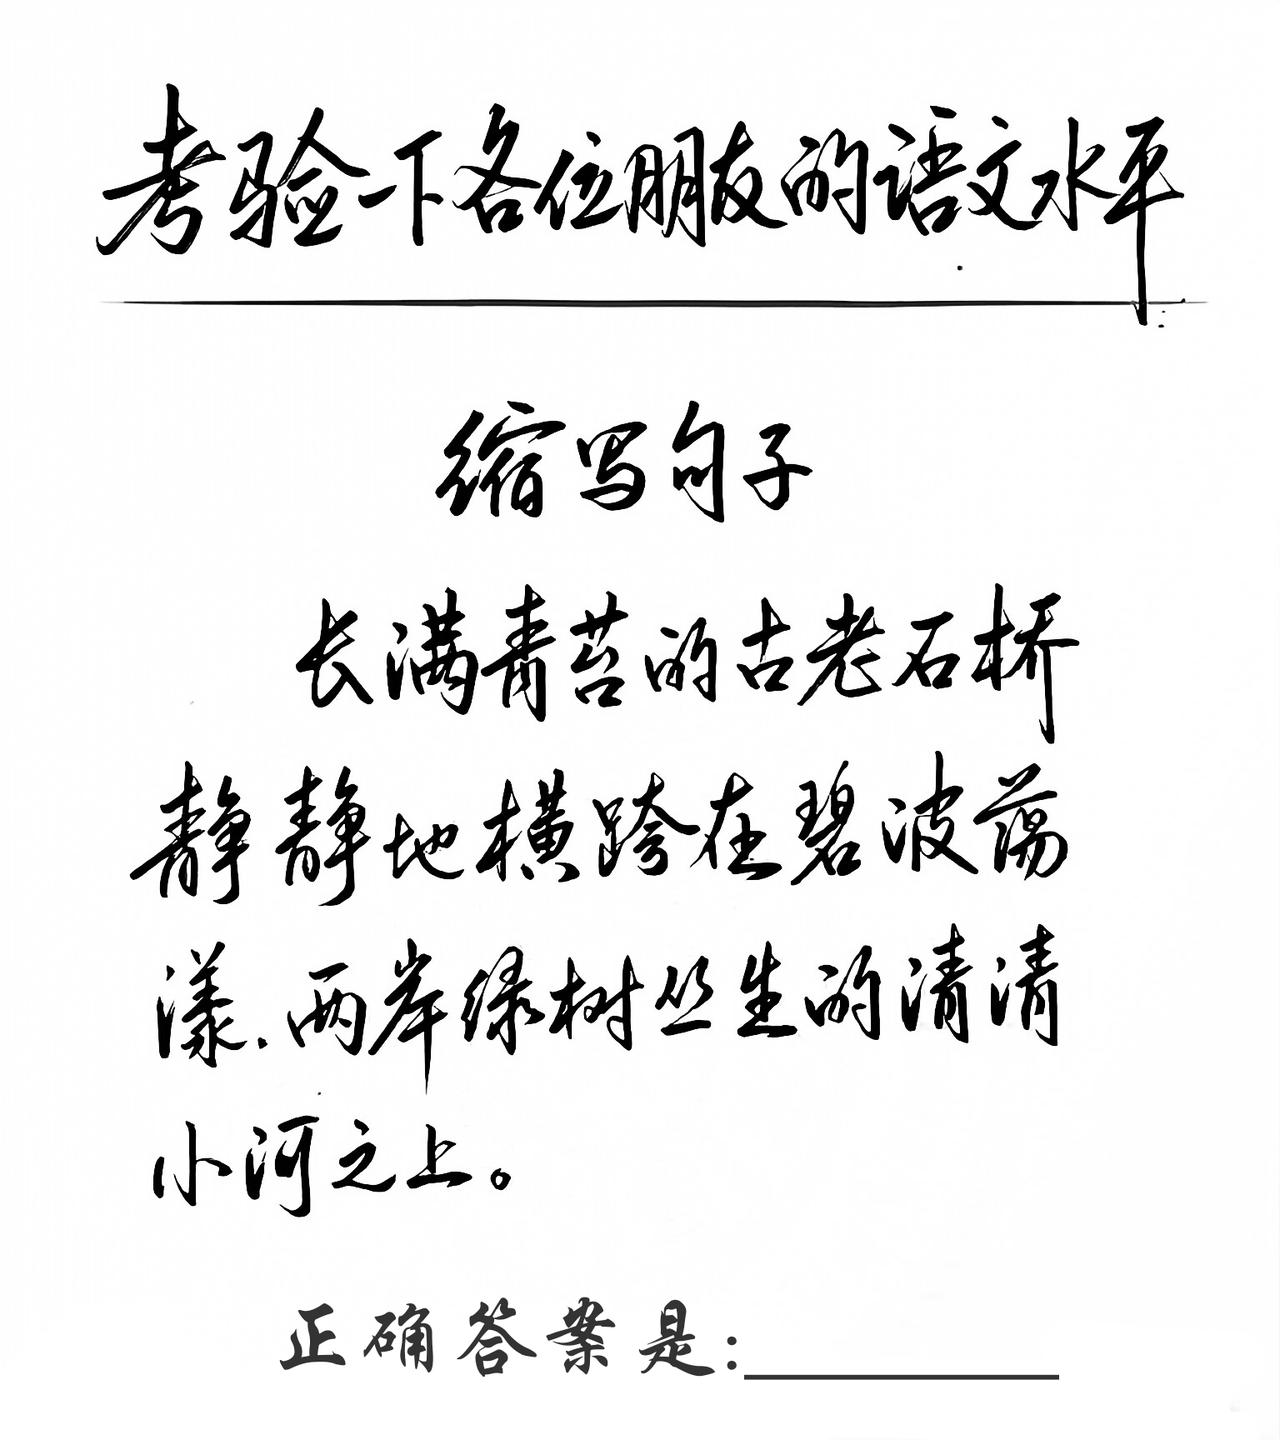 考验一下各位朋友的语文水平
缩写句子
长满青苔的古老石桥
静静地横跨在碧波荡
漾.两岸绿树丛生的清清
小河之上。
正确答案是: